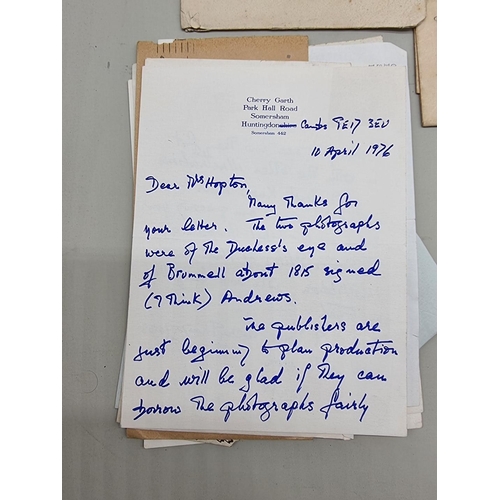 Cherry Garth
Park Hall Road
Somersham
Huntingdon Cambs PE17 3EU
Somersham 442
10 April 1976
Dear Mrs Hopton,
Many thanks for
your letter. The two photographs
were of the Duchess's eye and
of Brummell about 1815 signed
(I think) Andrews.
The publishers are
just beginning to plan production
and will be glad if they can
borrow the photographs fairly